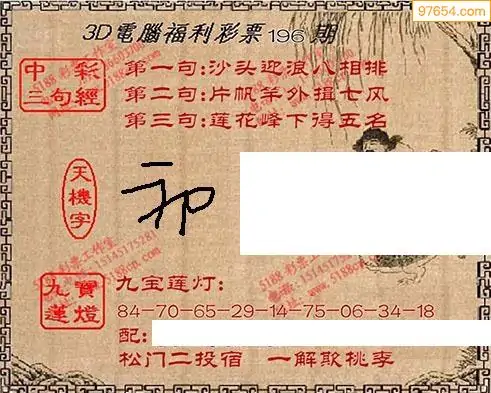 97654.com
3D電腦福利彩票196期
中彩
三句經
第一句:沙头迎浪八相排
第二句:片帆羊外揖七风
第三句:莲花峰下得五名
天機字
九寶
蓮燈
九宝莲灯:
84-70-65-29-14-75-06-34-18
配:
松门二投宿 一解欺桃李
5188 彩票工作室
15145175281
5188cn.com